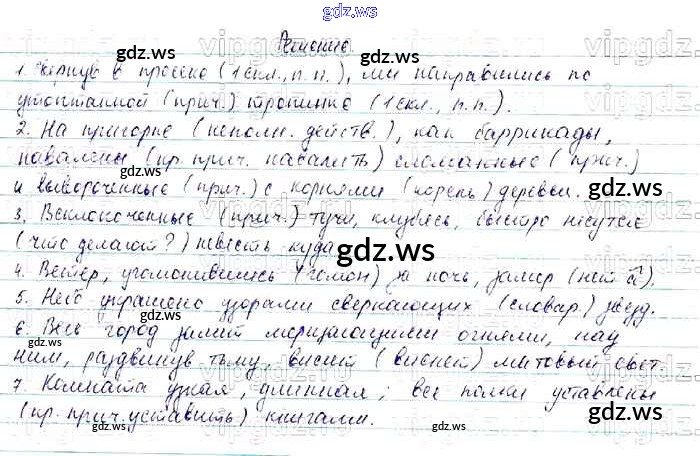 gdz.ws
Решение
1. Свернув в просеке (1 скл., п.п.), мы направились по
утоптанной (прич.) тропинке (1 скл., п.п.).
2. На пригорке (неполн. действ.), как баррикады,
навалены (кр. прич. навалить) сломанные (прич.)
и вывороченные (прич.) с корнями (корень) деревья.
3. Всклокоченные (прич.) тучи, клубясь, быстро несутся
(что делают?) невесть куда.
4. Ветер, угомонившись (гомон) за ночь, замер (нет а).
5. Небо украшено узорами сверкающих (словар.) звёзд.
6. Весь город залит мерцающими огнями, над
ним, раздвинув тьму, висит (виснет) матовый свет.
7. Комната узкая, длинная; все полки уставлены
(кр. прич. уставить) книгами.